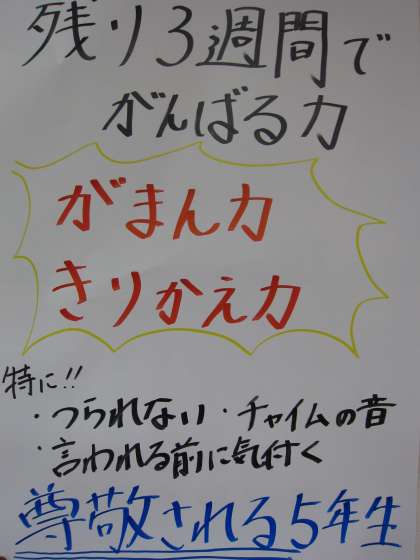 残り3週間で
がんばる力
がまん力
きりかえ力
特に!!
・つられない・チャイムの音
・言われる前に気付く
尊敬される5年生